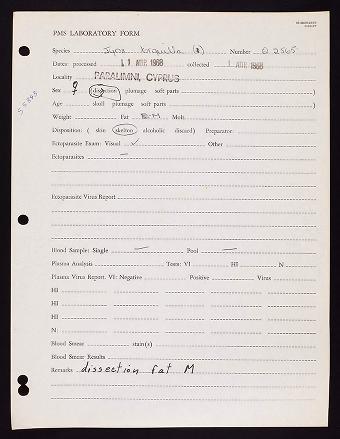 PMS LABORATORY FORM
Species Jynx torquilla Number O 2565
Dates: processed 11 APR 1968 collected 1 APR 1968
Locality PARALIMNI, CYPRUS
Sex ♀ (dissection plumage soft parts )
Age skull plumage soft parts )
Weight Fat Molt
Disposition: ( skin skeleton alcoholic discard) Preparator
Ectoparasite Exam: Visual ✓ Other
Ectoparasites —
Ectoparasite Virus Report
Blood Sample: Single — Pool —
Plasma Analysis Tests: VI HI N
Plasma Virus Report. VI: Negative Positive Virus
HI
HI
HI
N:
Blood Smear stain(s)
Blood Smear Results
Remarks dissection fat M